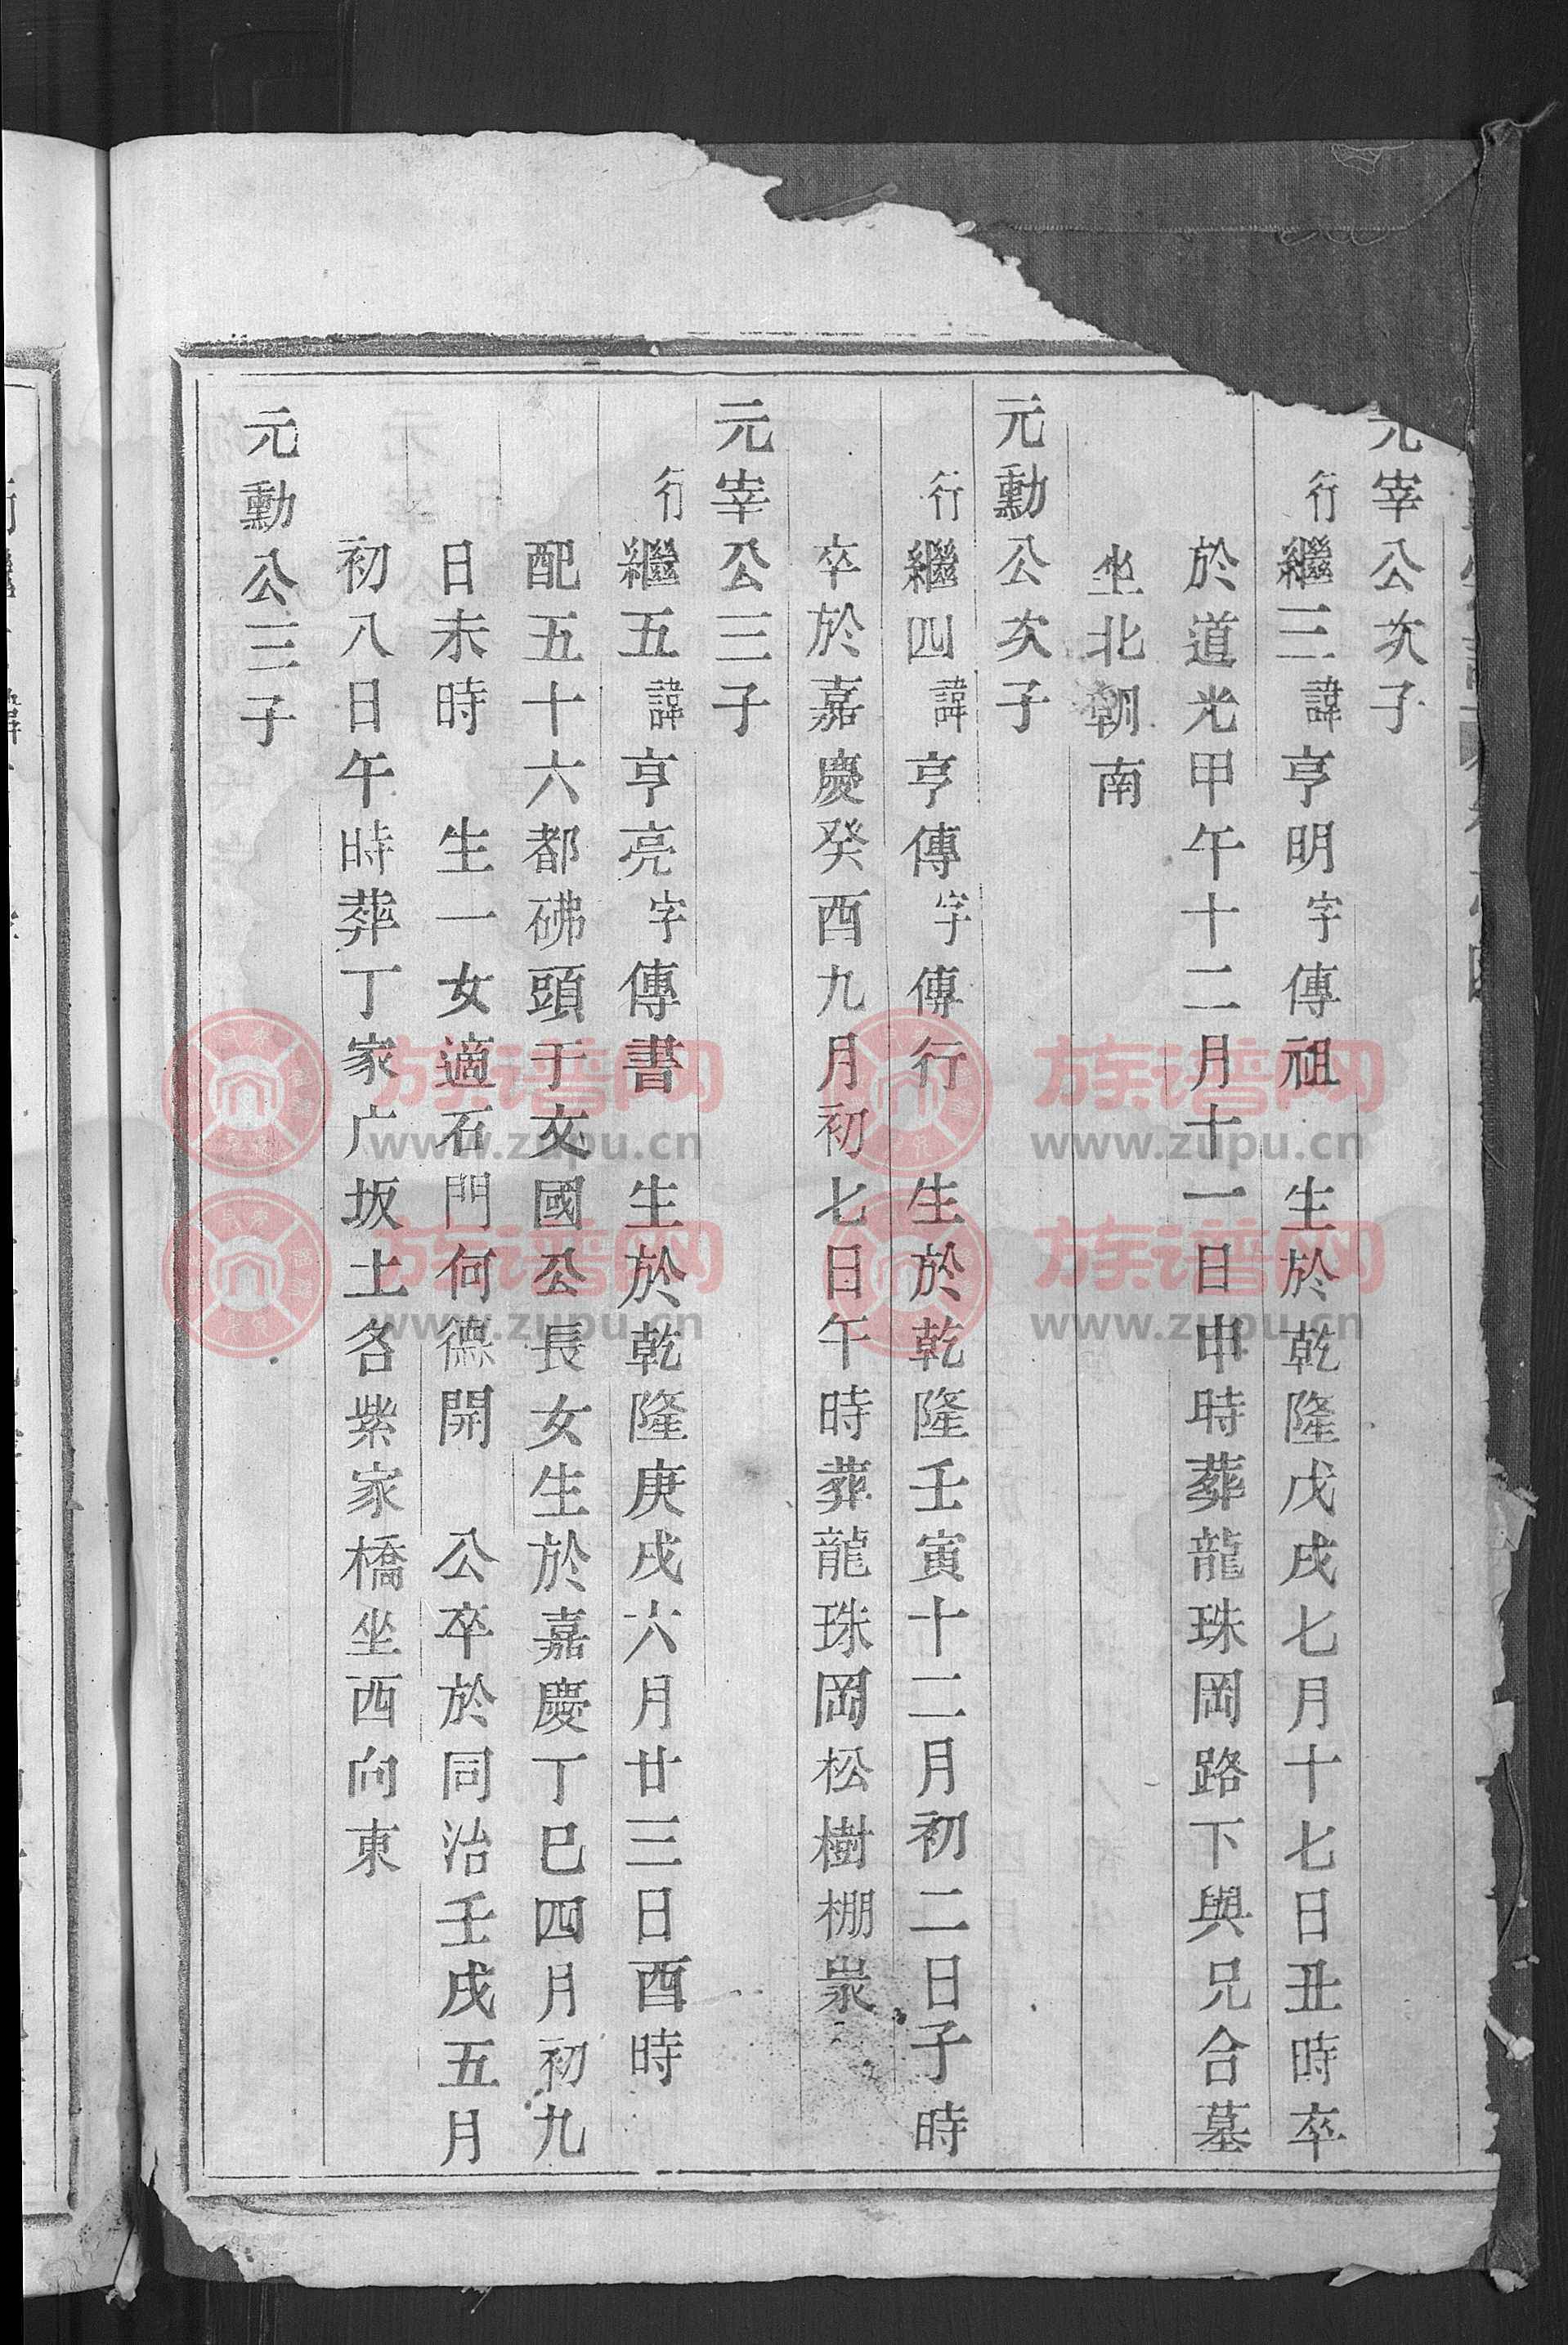 元宰公次子
行繼三諱亨明字傳祖　生於乾隆戊戌七月十七日丑時卒
於道光甲午十二月十一日申時葬龍珠岡路下與兄合墓
坐北朝南
元勳公次子
行繼四諱亨傳字傳行　生於乾隆壬寅十二月初二日子時
卒於嘉慶癸酉九月初七日午時葬龍珠岡松樹棚
元宰公三子
行繼五諱亨亮字傳書　生於乾隆庚戌六月廿三日酉時
配五十六都砩頭于文國公長女生於嘉慶丁巳四月初九
日未時　生一女適石門何德開　公卒於同治壬戌五月
初八日午時葬丁家广坂土名紫家橋坐西向東
元勳公三子
族谱网
www.zupu.cn
族谱网
www.zupu.cn
族谱网
www.zupu.cn
族谱网
www.zupu.cn